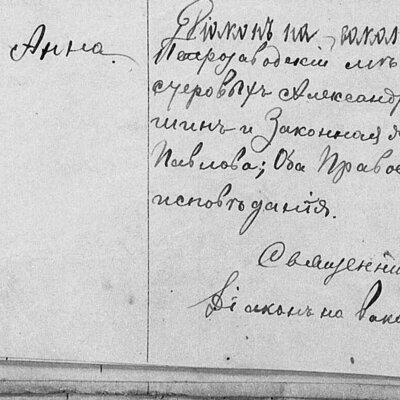 Анна.
Діаконъ на вакан
Петрозаводскій мѣ
Александр
шинъ и Законная
Павлова; Оба Правос
исповѣданія.
Священни
Діаконъ на вака